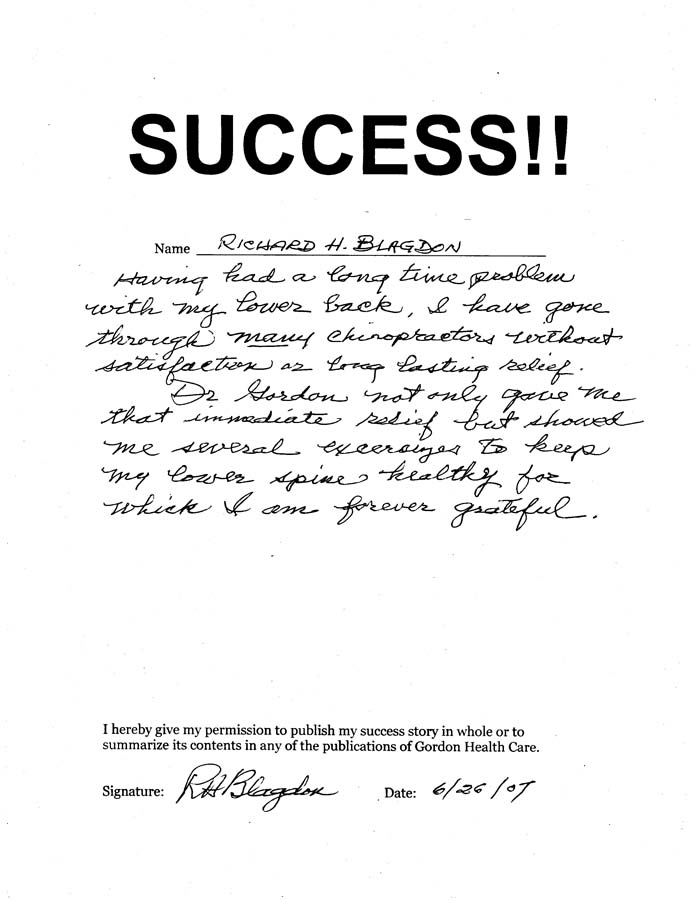 SUCCESS!!
Name RICHARD H. BLAGDON
Having had a long time problem
with my lower back, I have gone
through many chiropractors without
satisfaction or long lasting relief.
Dr Gordon not only gave me
that immediate relief but showed
me several excersizes to keep
my lower spine healthy for
which I am forever grateful.
I hereby give my permission to publish my success story in whole or to
summarize its contents in any of the publications of Gordon Health Care.
Signature: RH Blagdon Date: 6/26/07